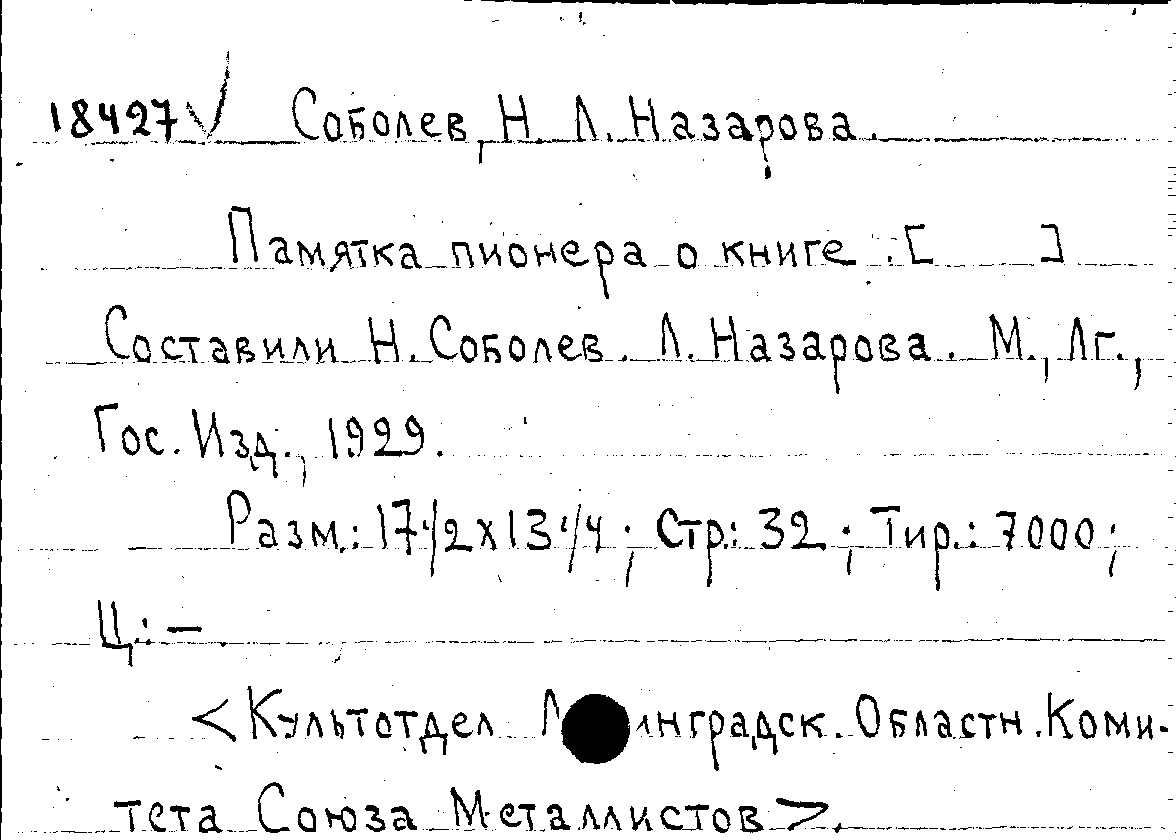 18427√ Соболев, Н. Л. Назарова.
Памятка пионера о книге. [ ]
Составили Н. Соболев. Л. Назарова. М., Лг.,
Гос. Изд., 1929.
Разм.: 17 1/2 x 13 1/4; Стр.: 32; Тир.: 7000;
Ц.: —
<Культотдел Областн. Коми-
тета Союза Металлистов>.